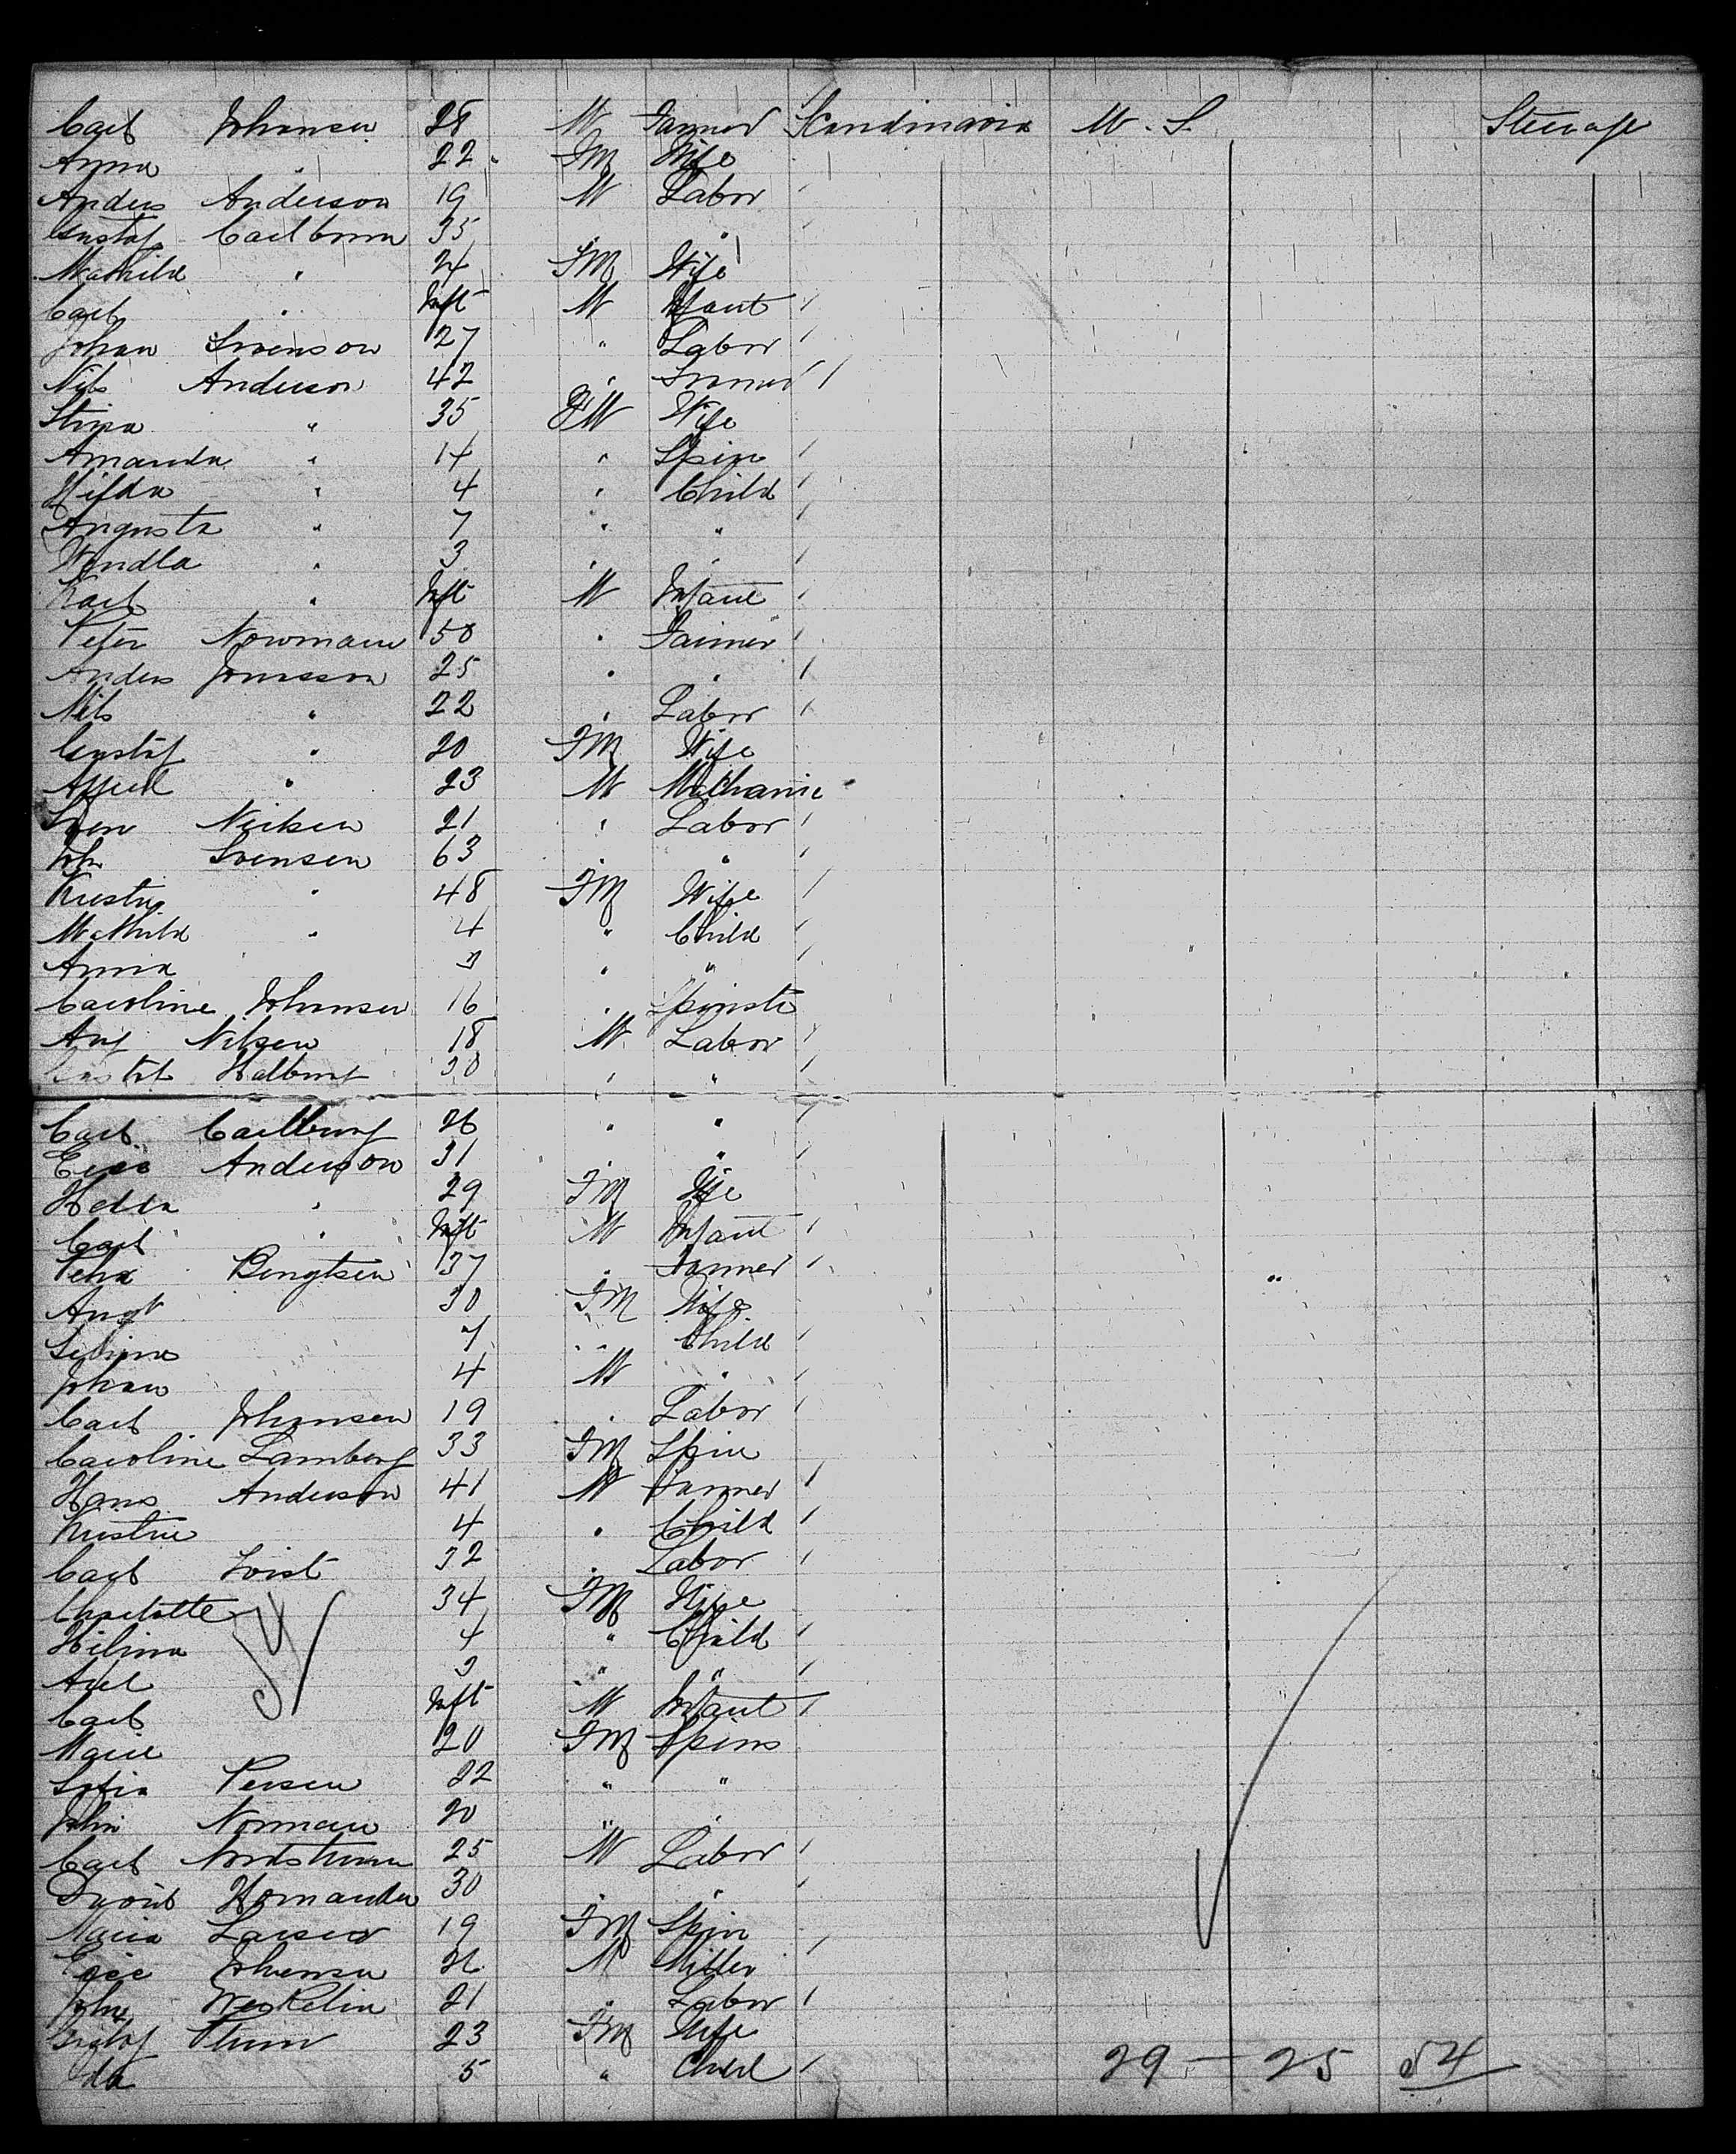 Carl Johansen 28 M Farmer Scandinavia U. S. Steerage
Anna " 22 FM Wife
Anders Anderson 19 M Labor
Gustaf Carlbom 35 " "
Mathild " 24 FM Wife
Carl " Inft M Infant
Johan Svenson 27 " Labor
Nils Anderson 42 " Farmer
Stina " 35 FM Wife
Amanda " 14 " Spin
Hilda " 4 " Child
Augusta " 7 " "
Wendla " 3 " "
Karl " Inft M Infant
Peter Nowmann 58 " Farmer
Anders Jonsson 25 " "
Nils " 22 " Labor
Gustaf " 20 FM Wife
Alfred " 23 M Mechanic
Sven Neilsen 21 " Labor
Joh Svensen 63 " "
Kristin " 48 FM Wife
Mathild " 4 " Child
Anna 3 " "
Caroline Johansen 16 " Spinster
Aug Nilsen 18 M Labor
Gustaf Halberg 30 " "
Carl Carlberg 26 " "
Eric Anderson 31 " "
Hedda " 29 FM Wife
Carl " Inft M Infant
Pehr Bengtsen 37 " Farmer
Augt 30 FM Wife
Selina 7 " Child
Johan 4 M "
Carl Johansen 19 " Labor
Caroline Lamberg 33 FM Spin
Hans Anderson 41 M Farmer
Kristine 4 " Child
Carl 32 " Labor
Charlotte 34 FM Wife
Hilma 4 " Child
Axel 3 " "
Carl Inft M Infant
Marie 20 FM Spins
Sofia Persen 22 " "
John Norman 20 " "
Carl Nordstrom 25 M Labor
30 " "
Maria Larsen 19 FM Spin
Eric Johansen 26 M Miller
John 21 " Labor
Gustaf 23 FM Wife
Ida 5 " Child
29 — 25 54